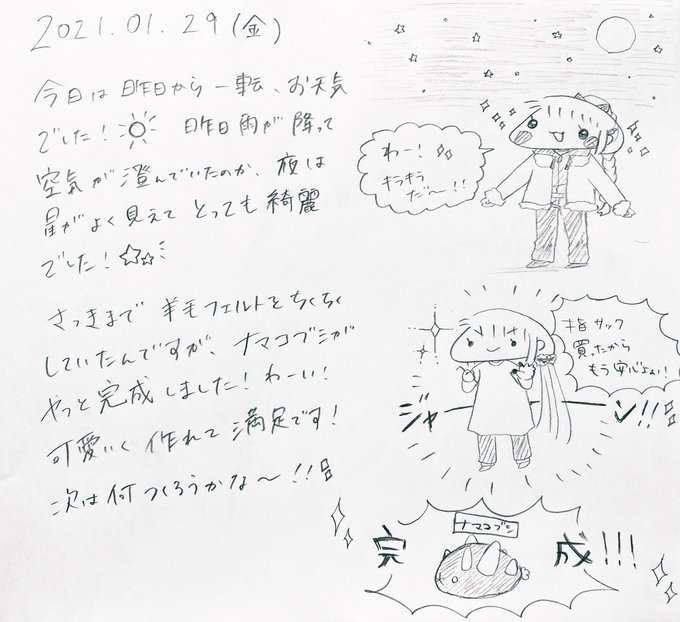 2021.01.29(金)
今日は昨日から一転、お天気
でした! 昨日雨が降って
空気が澄んでいたのか、夜は
星がよく見えてとっても綺麗
でした!
さっきまで羊毛フェルトをちくちく
していたんですが、ナマコブシが
やっと完成しました!わーい!
可愛いく作れて満足です!
次は何つくろうかな〜!!
わー!
キラキラ
だ〜!!
指サック
買ったから
もう安心よぉ!
ジャーン!!
ナマコブシ
完成!!!